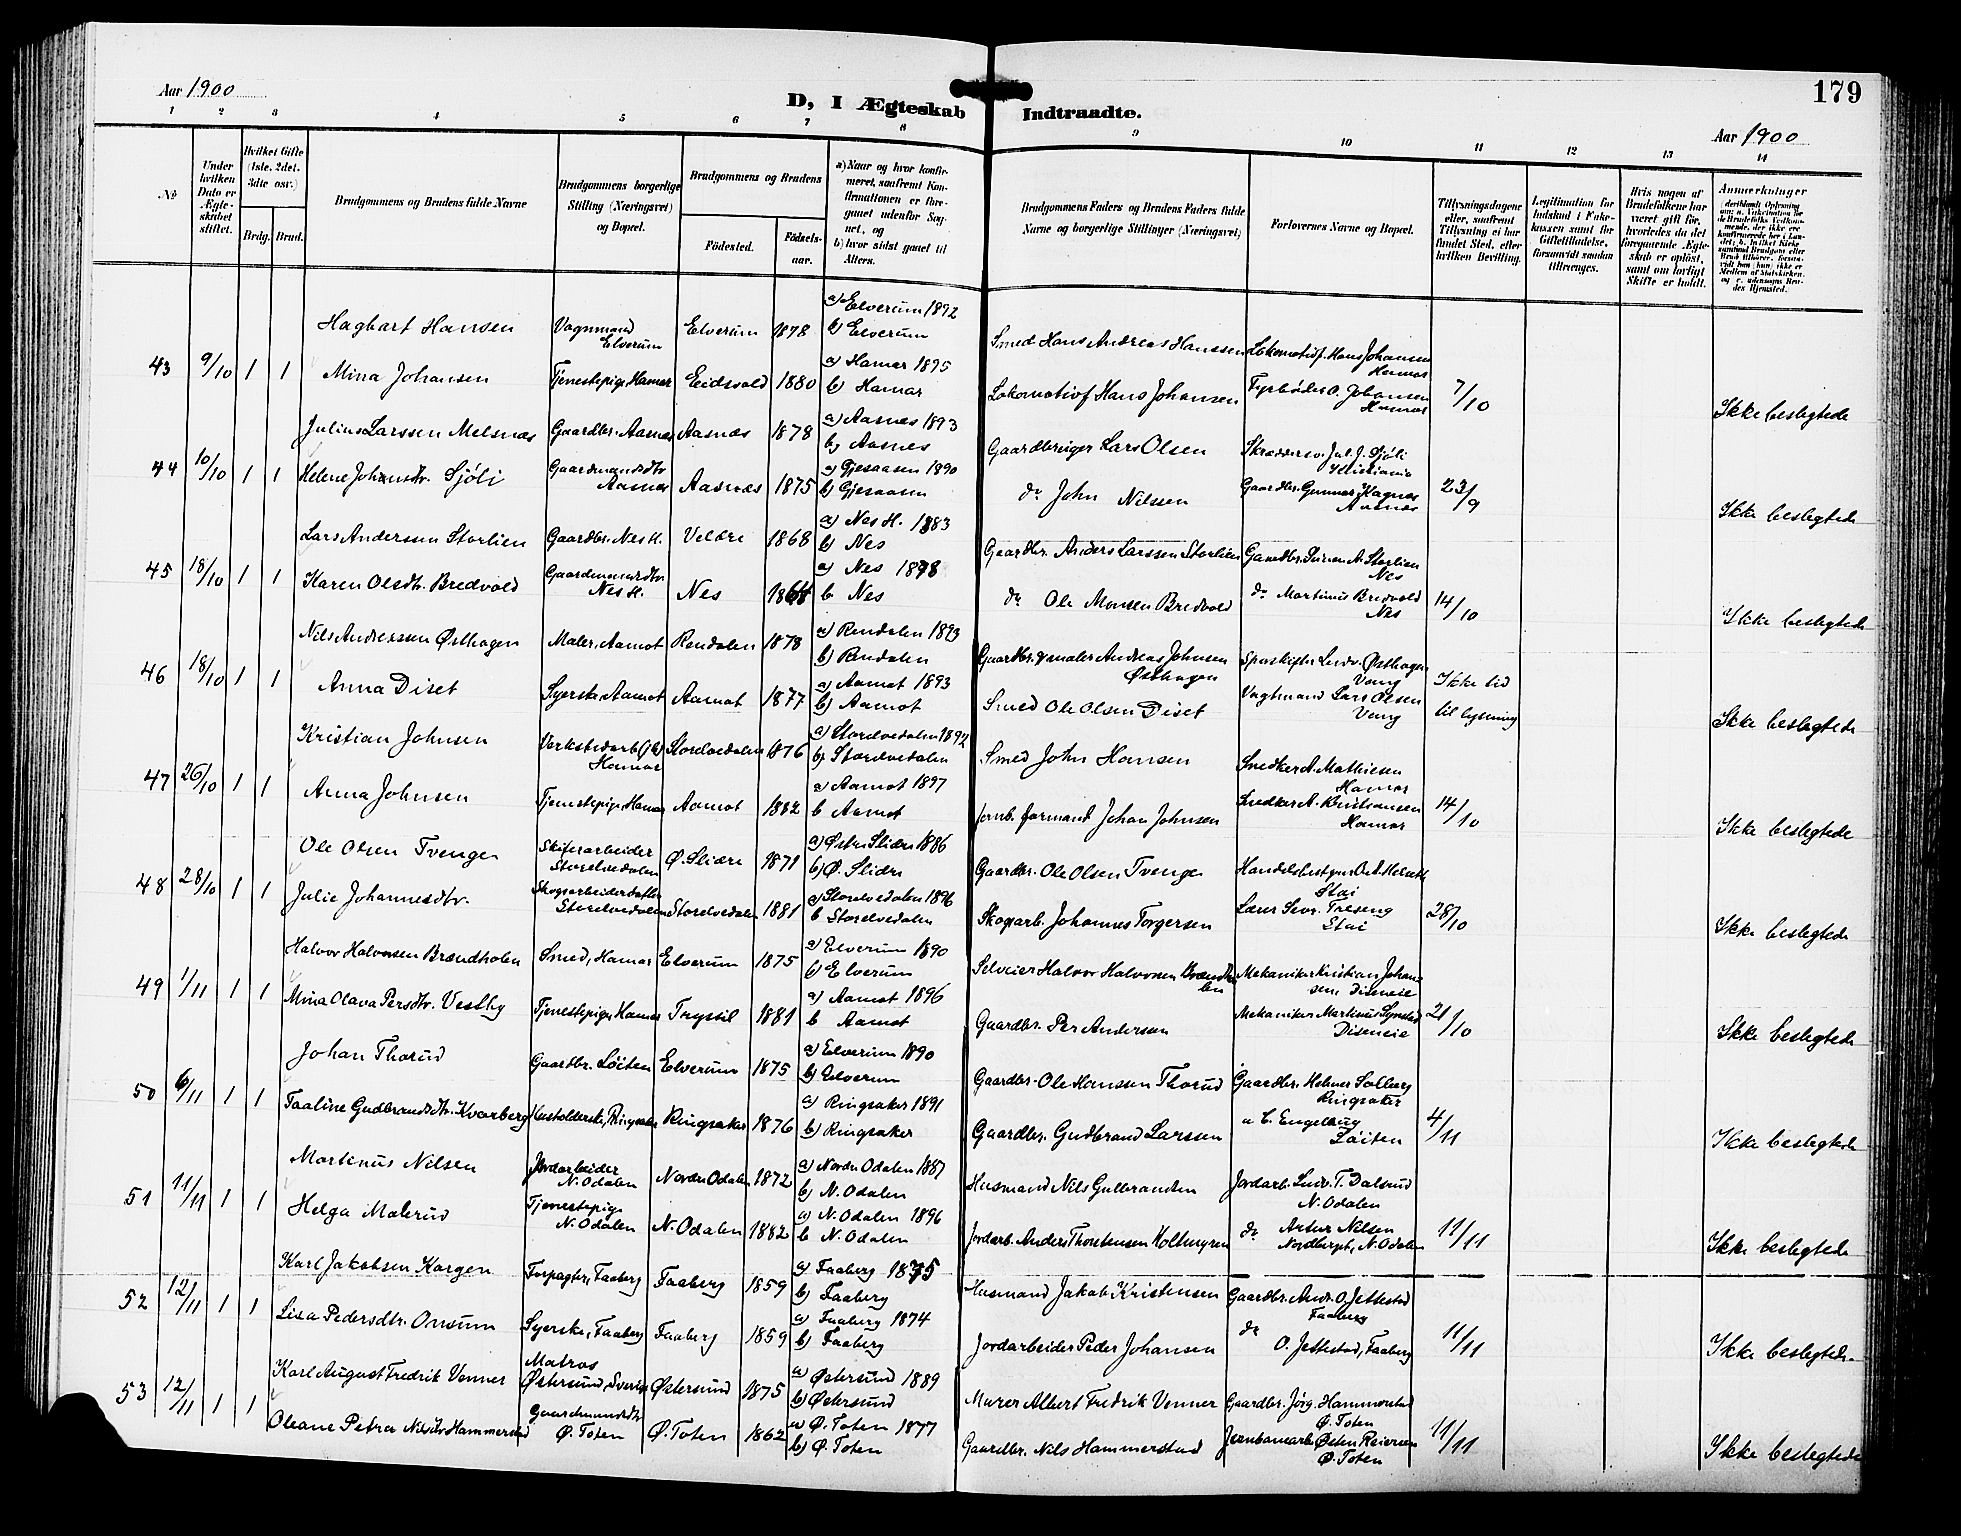 Aar 1900
D, I Ægteskab Indtraadte.
179
Aar 1900
1 2 3 4 5 6 7 8 9 10 11 12 13 14
No
Under hvilken Dato er Ægteskabet stiftet.
Hvilket Gifte (1ste, 2det, 3die osv.)
Brdg. Brud.
Brudgommens og Brudens fulde Navne
Brudgommens borgerlige Stilling (Næringsvei) og Bopæl.
Brudgommens og Brudens
Fødested.
Fødselsaar.
a) Naar og hvor konfirmeret, saafremt Konfirmationen er foregaaet udenfor Sognet, og
b) hvor sidst gaaet til Alters.
Brudgommens Faders og Brudens Faders fulde Navne og borgerlige Stillinger (Næringsvei)
Forlovernes Navne og Bopæl.
Tillysningsdagene eller, saafremt Tillysning ei har fundet Sted, efter hvilken Bevilling.
Legitimation for Indskud i Enkekassen samt for Giftetilladelse, forsaavidt saadan tiltrænges.
Hvis nogen af Brudefolkene har været gift før, hvorledes da det foregaaende Ægteskab er opløst, samt om lovligt Skifte er holdt.
Anmærkninger
43 9/10 1 1
Hagbart Hansen Vognmand Elverum Elverum 1878 a) Elverum 1892 b) Elverum Smed Hans Andreas Hanssen Lokomotivf. Hans Johansen Hamar
Mina Johansen Tjenestepige Hamar Eidsvold 1880 a) Hamar 1895 b) Hamar Lokomotivf Hans Johansen Fyrbøder O. Johansen Hamar 7/10 Ikke beslegtede
44 10/10 1 1
Julius Larssen Melsnæs Gaardbr. Aasnæs Aasnæs 1878 a) Aasnæs 1893 b) Aasnes Gaardbruger Lars Olsen Skrædersv. Jul. J. Sjøli Kristiania
Helene Johnsdtr. Sjøli Gaardmandsdtr Aasnæs Aasnæs 1875 a) Gjesaasen 1890 b) Gjesaasen do John Nilssen Gaardbr. Gunnar Hagnæs Aasnæs 23/9 Ikke beslegtede
45 18/10 1 1
Lars Anderssen Storlien Gaardbr. Nes H. Veldre 1868 a) Nes H. 1883 b) Nes Gaardbr. Anders Larssen Storlien Gaardbr. A. Storlien Nes
Karen Olsdtr. Bredvold Gaardmandsdtr Nes H. Nes a) Nes 1878 b Nes do Ole Monsen Bredvold do Martinus Bredvold Nes 14/10 Ikke beslegtede
46 18/10 1 1
Nils Andreassen Østhagen Maler, Aamot Rendalen 1878 a) Rendalen 1893 b) Rendalen Gaardbr. & maler Andreas Johnsen Østhagen Sporskifter Ludv. Østhagen Vang
Anna Diset Syerske Aamot Aamot 1877 a) Aamot 1893 b) Aamot Smed Ole Olsen Diset Vagtmand Lars Olsen Vang Ikke tid til lysning Ikke beslegtede
47 26/10 1 1
Kristian Johnsen Hamar Storelvedalen 1876 a) Storelvedalen 1892 b) Storelvedalen Smed John Hansen Snedker A. Mathiesen Hamar
Anna Johnsen Tjenestepige Hamar Aamot 1882 a) Aamot 1897 b Aamot Jernb. formand Johan Johnsen Snedker A. Kristiansen Hamar 14/10 Ikke beslegtede
48 28/10 1 1
Ole Olsen Tvenge Skiferarbeider Storelvedalen Ø. Slidre 1871 a) Østre Slidre 1886 b) Ø. Slidre Gaardbr. Ole Olsen Tvenge Handelsbestyrer Stai
Julie Johannesdtr. Skogsarbeiderdatter Storelvedalen Storelvedalen 1881 a) Storelvedalen 1896 b Storelvedalen Skogsarb. Johannes Torgersen Lærer Sevr. Treseng Stai 28/10 Ikke beslegtede
49 1/11 1 1
Halvor Halvorsen Brændholen Smed, Hamar Elverum 1875 a) Elverum 1890 b) Elverum Selveier Halvor Halvorsen Brændholen Mekaniker Kristian Johansen, Diseneie
Mina Olava Persdtr. Vestby Tjenestepige Hamar Trysil 1881 a) Aamot 1896 b Aamot Gaardbr. Per Andersen Mekaniker Martinus Diseneie 21/10 Ikke beslegtede
50 6/11 1 1
Johan Thorud Gaardbr. Løiten Elverum 1875 a) Elverum 1890 b) Elverum Gaardbr. Ole Hanssen Thorud Gaardbr. Helmer Solberg Ringsaker
Taaline Gudbrandsdtr. Kvarberg Husholderske, Ringsaker Ringsaker 1876 a) Ringsaker 1891 b) Ringsaker Gaardbr. Gudbrand Larssen " C. Engelhaug Løiten 4/11 Ikke beslegtede
51 11/11 1 1
Martinus Nilsen Jordarbeider N. Odalen Nordre Odalen 1872 a) Nordre Odalen 1887 b) N. Odalen Husmand Nils Gulbrandsen Jordarb. Ludv. T. Dalsrud N. Odalen
Helga Malerud Tjenestepige N. Odalen N. Odalen 1882 a) N. Odalen 1896 b N. Odalen Jordarb. Anders Thorstensen do Artur Nilsen N. Odalen 11/11 Ikke beslegtede
52 12/11 1 1
Karl Jakobsen Korgen Forpagter, Faaberg Faaberg 1859 a) Faaberg 1875 b) Faaberg Husmand Jakob Kristensen Gaardbr. Andr. O. Jettestad Faaberg
Lisa Pedersdtr. Onsum Syerske, Faaberg Faaberg 1859 a) Faaberg 1874 b) Faaberg Jordarbeider Peder Johansen do O. Jettestad, Faaberg 11/11 Ikke beslegtede
53 12/11 1 1
Karl August Fredrik Venner Matros Østersund, Sverige Østersund 1875 a) Østersund 1889 b) Østersund Murer Albert Fredrik Venner Gaardbr. Jørg. Hammerstad Ø. Toten
Oleane Petra Nilsdtr Hammerstad Gaardmandsdtr Ø. Toten Ø. Toten 1862 a) Ø. Toten 1877 b) Ø. Toten Gaardbr. Nils Hammerstad Jernbanearb. Østen Reiersen Ø. Toten 11/11 Ikke beslegtede